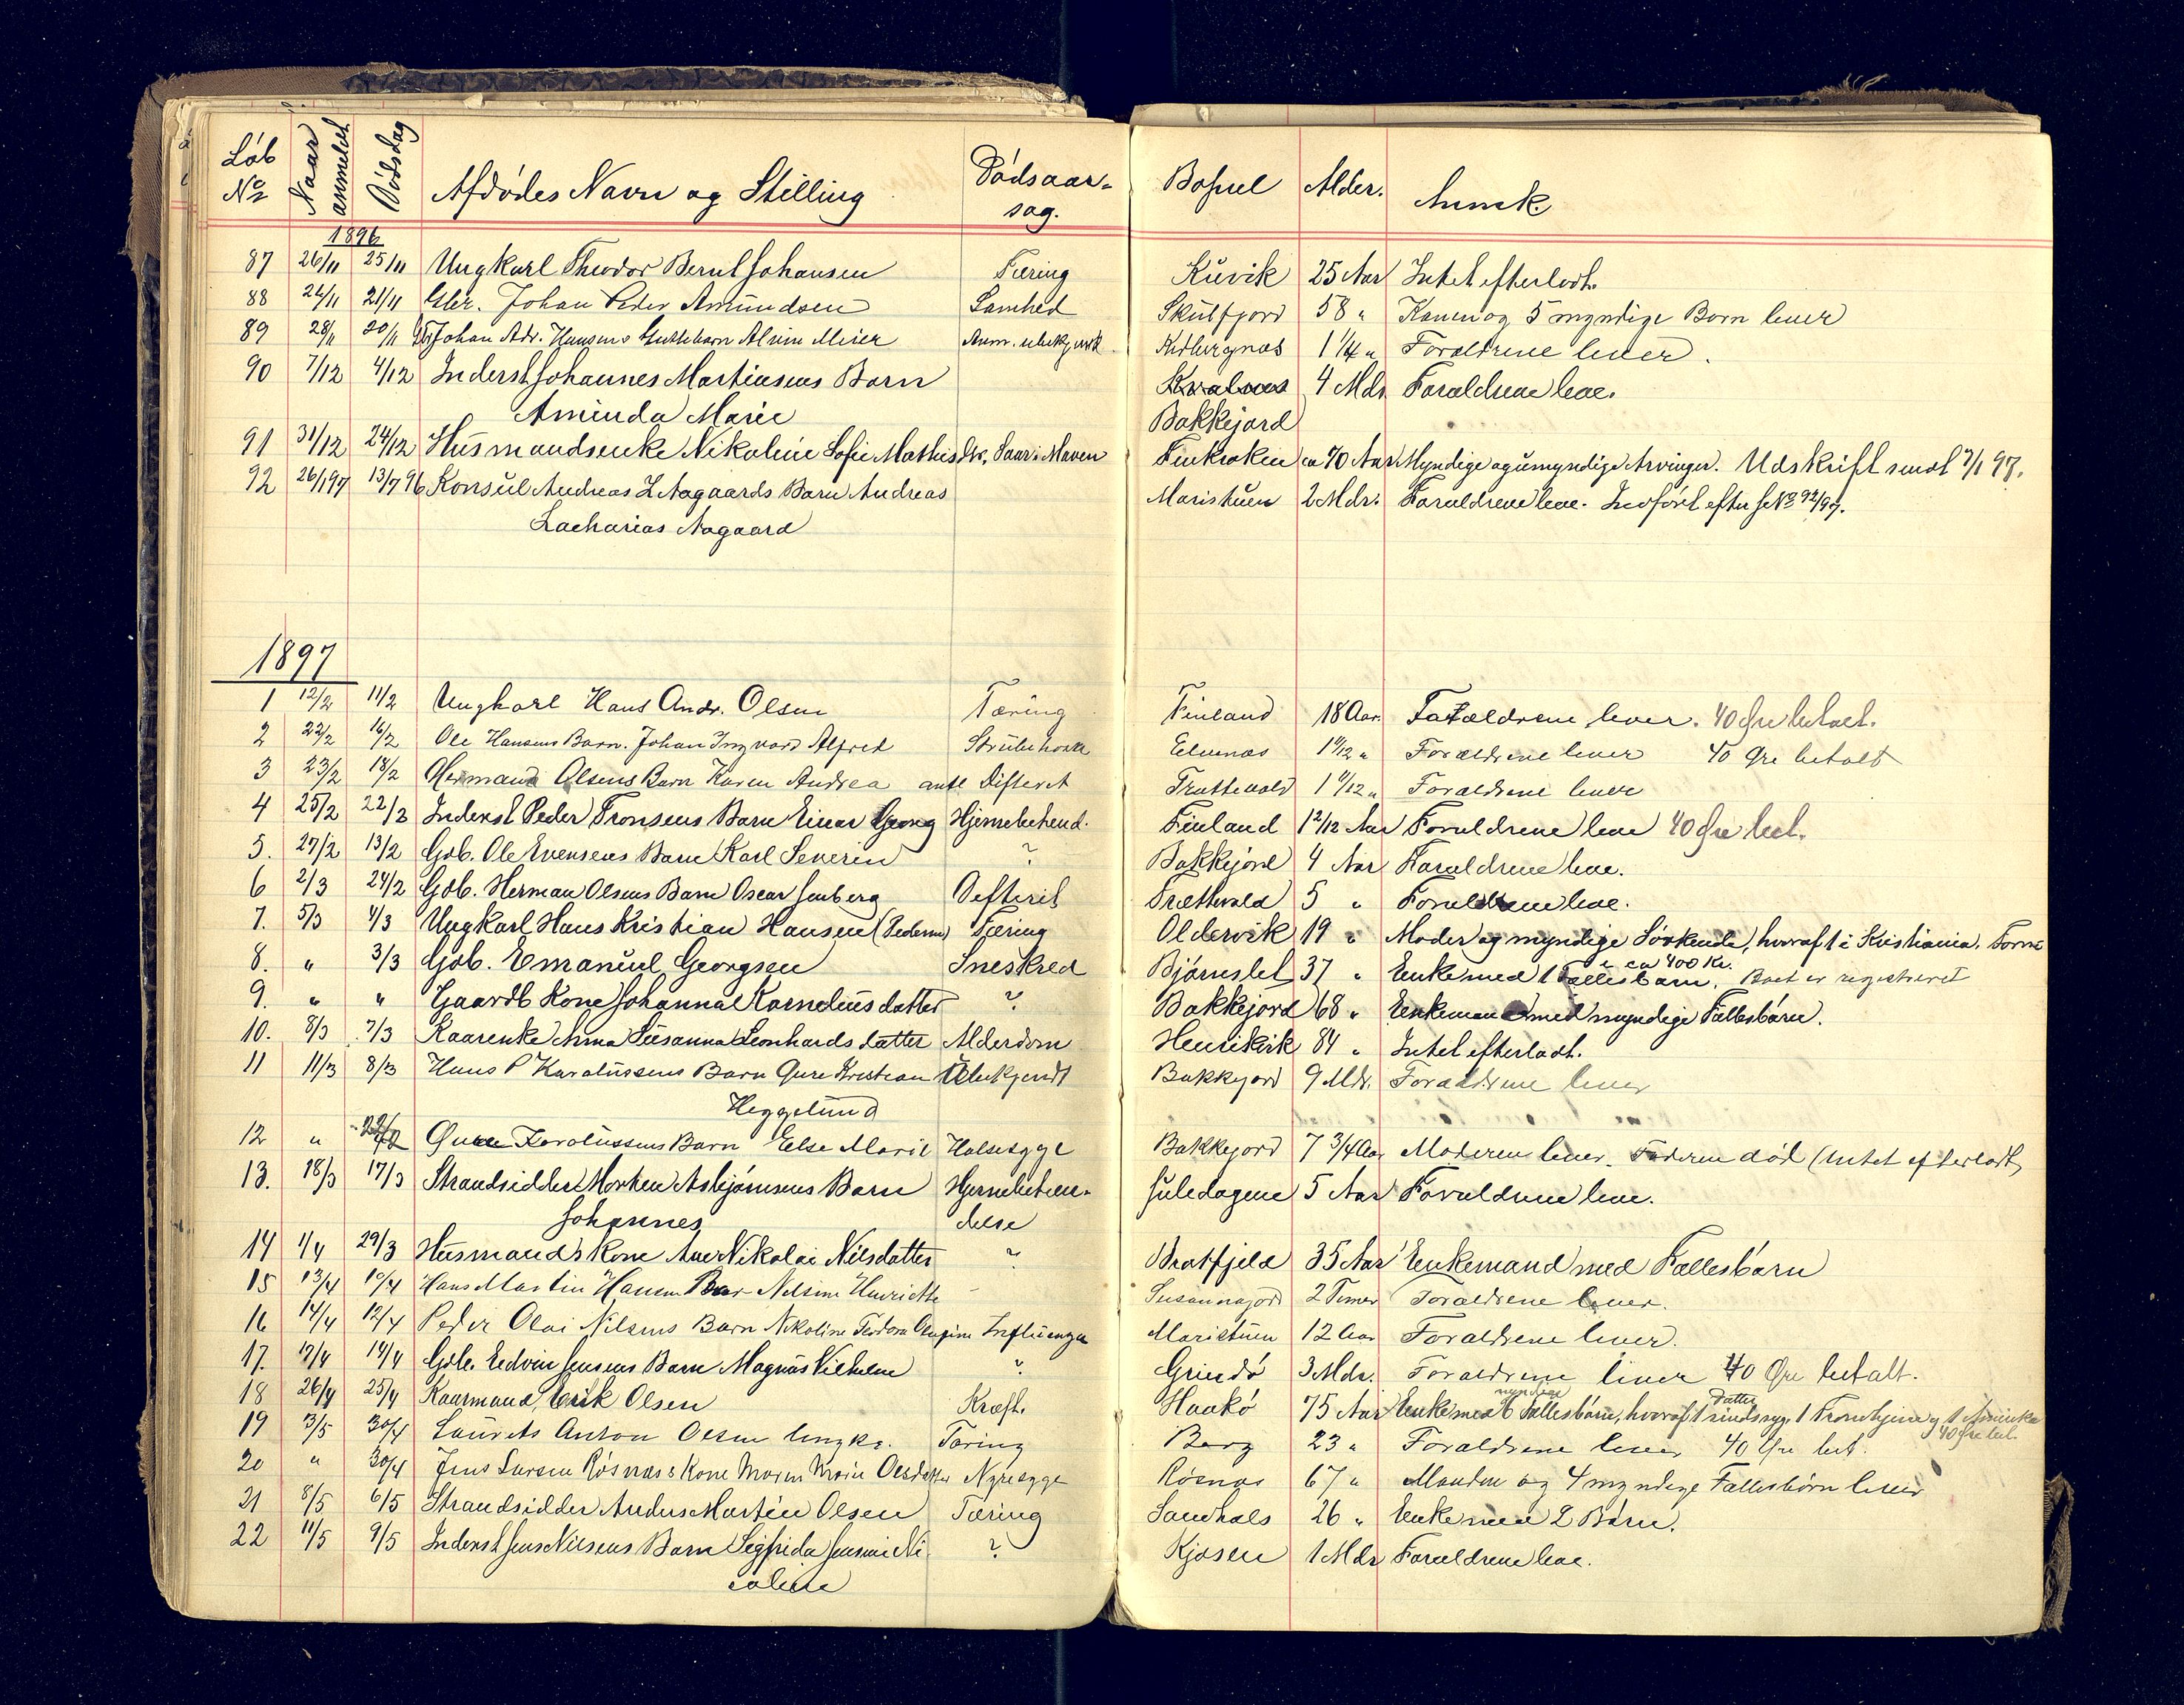 Løb No Naar anmeldt Dødsdag Afdødes Navn og Stilling Dødsaarsag. Bopæl Alder. Anmk.
1896
87 26/11 25/11 Ungkarl Theodor Bernt Johansen Tæring Kuvik 25 Aar Intet efterladt.
88 26/11 21/11 Johan Peder Amundsen Lamhed Skulfjord 58 " Konen og 5 myndige Børn lever
89 28/11 20/11 Johan Adr. Hansens Guttebarn Alvin Meier Anm. ubekjendt 1 1/4 " Forældrene lever.
90 7/12 4/12 Inderst Johannes Martinsens Barn Kvalnes 4 Mdr Forældrene leve.
Aminda Marie Bakkejord
91 31/12 24/12 Husmandsenke Nikoline Sofie Mathisdtr. Saar i Maven Finkroken ca 70 Aar Myndige og umyndige Arvinger. Udskrift sendt 7/1 97.
92 26/1 97 13/7 96 Konsul Andreas Z Aagaards Barn Andreas Maristuen 2 Mdr. Forældrene leve. Indført efter No 92/97.
Zacharias Aagaard
1897
1 12/2 11/2 Ungkarl Hans Andr. Olsen Tæring Finland 18 Aar. Forældrene lever. 40 Øre betalt.
2 22/2 16/2 Ole Hansens Barn. Johan Ingvard Alfred Strubehoste 1 11/12 " Forældrene lever 40 Øre betalt
3 23/2 18/2 Hermana Olsens Barn Karen Andrea antl Difterit Trættevold 1 1/12 " Forældrene lever
4 25/2 22/2 Inderst Peder Tronsens Barn Einar Georg Hjernebetænd. Finland 1 2/12 Aar Forældrene leve 40 Øre bet.
5. 27/2 13/2 Gdb. Ole Evensens Barn Karl Severin ? Bakkejord 4 Aar Forældrene leve.
6 2/3 24/2 Gdb. Herman Olsens Barn Oscar Jenberg Defterit Trættevold 5 " Forældrene leve.
7. 5/3 4/3 Ungkarl Hans Kristian Hansen (Pedersen) Tæring Oldervik 19 " Moder og myndige Søskende, hvoraf 1 i Kristiania. Form
e ca 400 Kr.
8. " 3/3 Gdb. Emanuel Georgsen Sneskred Bjørnslet 37 " Enke med 1 Fællesbarn. Boet er registreret
9. " " Gaardb Kone Johanna Korneliusdatter ? Bakkejord 68 " Enkemand med myndige Fællesbørn.
10. 8/3 7/3 Kaarenke Anna Susanna Leonhardsdatter Alderdom Henrikvik 84 " Intet efterladt.
11 11/3 8/3 Hans P Karolussens Barn Gure Kristian Ubekjendt Bakkejord 9 Mdr. Forældrene lever
Heggelund
12 " Karolussens Barn Else Marie Halsesyge Bakkejord 7 3/4 Aar Moderen lever. Faderen død (Intet efterladt)
13. 18/3 17/3 Strandsidder Morten Asbjørnsens Barn Hjernebetæn- Juledagene 5 Aar Forældrene leve.
Johannes delse
14 1/4 29/3 Husmands Kone Ane Nikolai Nilsdatter ? Bratfjeld 35 Aar Enkemand med Fællesbørn
15 13/4 10/4 Hans Martin Hansen Barn Nelsine Henriette - Susannajord 2 Timer Forældrene lever.
16 14/4 12/4 Peder Olai Nilsens Barn Nikoline Teodora Olugine Influenza Maristuen 12 Aar Forældrene lever.
17. 17/4 14/4 Gdb. Edvin Jensens Barn Magnus Vilhelm ? Grindø 3 Mdr. Forældrene lever 40 Øre betalt.
18 26/4 25/4 Kaarmand Erik Olsen Kræft. Haakø 75 Aar Enke med 6 myndige Fællesbørn, hvoraf 1 Datter sindssyg. 1 Trondhjem og 1 Amerika
40 Øre bet.
19 3/5 30/4 Laurits Anton Olsen Ungkr. Tæring Berg 23 " Forældrene lever 40 Øre bet.
20 " 30/4 Jens Larsen Røsnæs Kone Maren Marie Olsdtr Nyresyge Røsnæs 67 " Manden og 4 myndige Fællesbørn lever
21 8/5 6/5 Strandsidder Anders Martin Olsen Tæring Sandhals 26 " Enke med 2 Børn.
22 11/5 9/5 Inderst Jens Nilsens Barn Sigfrida Jensine Ni ? Kjosen 1 Mdr Forældrene leve.
coline